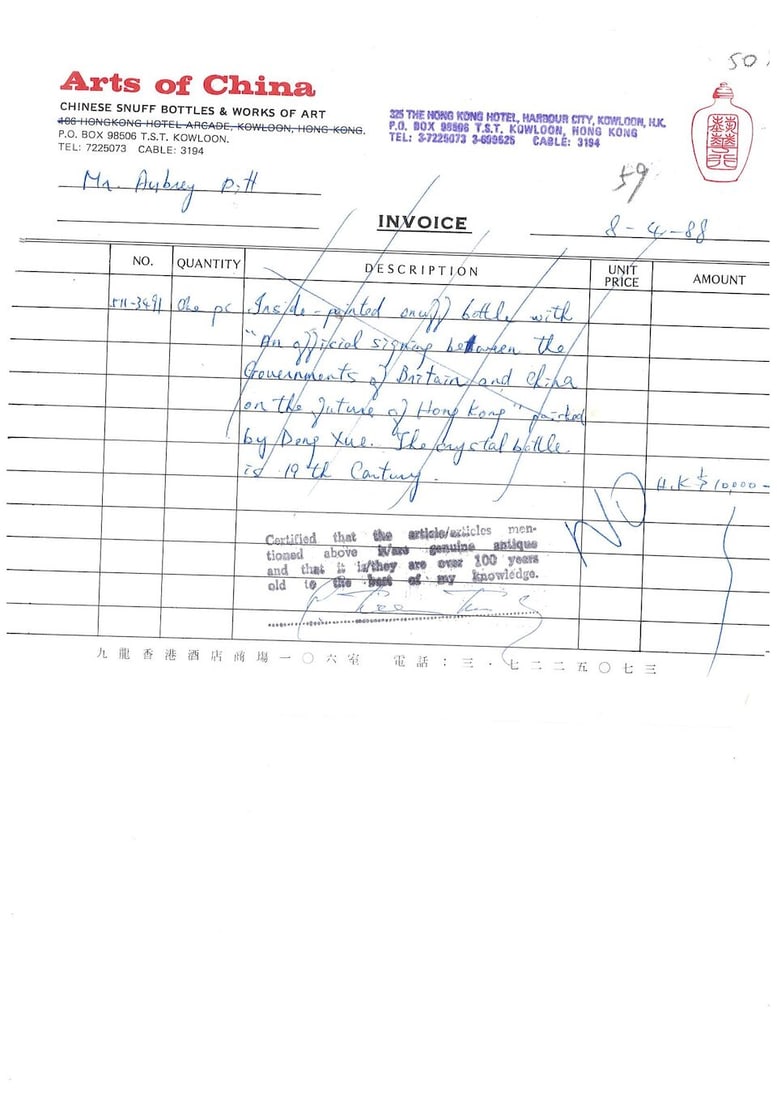 50
Arts of China
CHINESE SNUFF BOTTLES & WORKS OF ART
106 HONGKONG HOTEL ARCADE, KOWLOON, HONG KONG.
P.O. BOX 98506 T.S.T. KOWLOON.
TEL: 7225073 CABLE: 3194
325 THE HONG KONG HOTEL, HARBOUR CITY, KOWLOON, H.K.
P.O. BOX 98506 T.S.T. KOWLOON, HONG KONG
TEL: 3-7225073 3-699625 CABLE: 3194
59
Mr. Aubrey Pitt
INVOICE
8-4-88
NO. QUANTITY DESCRIPTION UNIT PRICE AMOUNT
One pc Inside-painted snuff bottle with
"An official signing between the
Governments of Britain and China
on the future of Hong Kong" painted
by Deng Xue. The crystal bottle
is 19th Century.
H.K$10,000-
NO
Certified that the article/articles men-
tioned above is/are genuine antique
and that it is/they are over 100 years
old to the best of my knowledge.
九龍香港酒店商場一〇六室 電話：三·七二二五〇七三